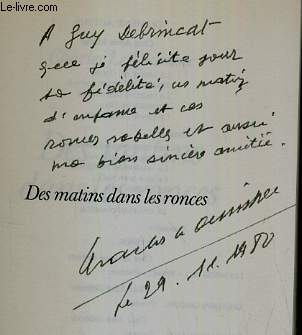 Le-livre.com
A Guy Debrincat
que je félicite pour
sa fidélité, ces matins
d'enfance et ces
ronces rebelles et aussi
ma bien sincère amitié.
Des matins dans les ronces
le 29.11.1980